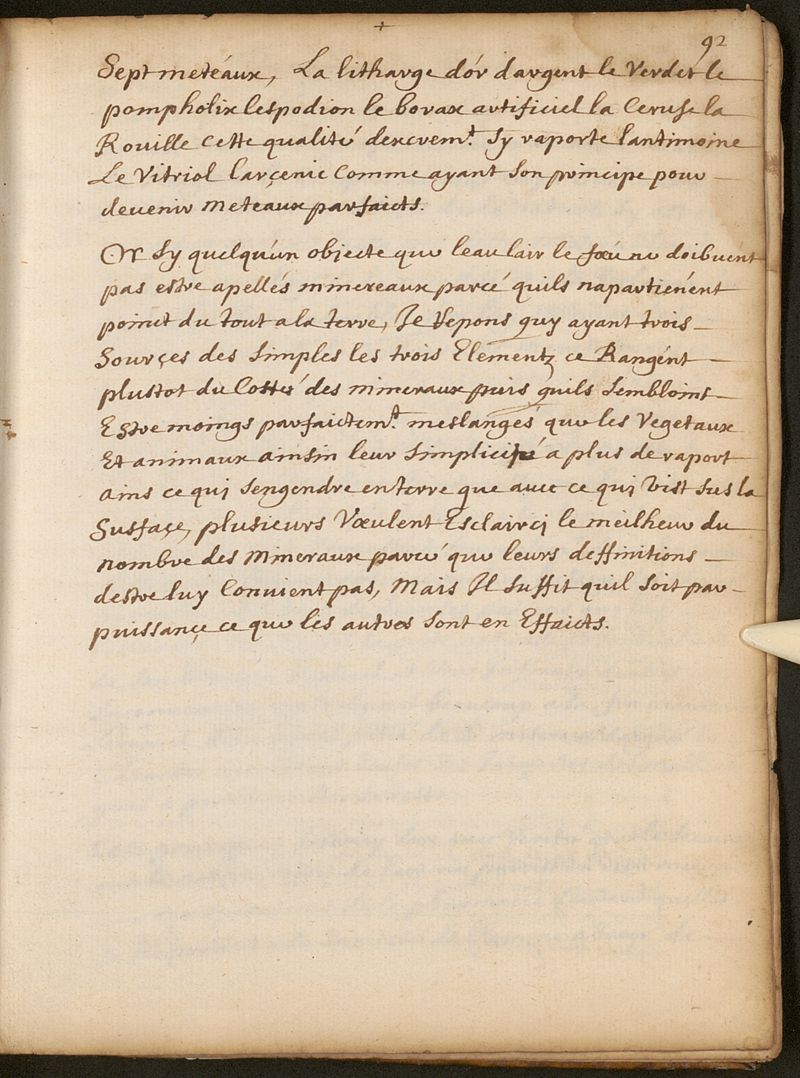 92
Sept meteáux, La litharge d'or dargent le Verdet le
pompholix lespodion le borax artificiel la Ceruse la
Rouille cette qualité dexcremt. Sy raporte lantimoine
Le Vitriol larçenic Comme ayant Son principe pour
devenir meteaux parfaicts.
Or Sy quelqu'un objecte que leau lair le foeu ne doibuent
pas estre apellés minereaux parcé quils napartienent
poinct du tout a la terre, Je Repons quy ayant trois
Sources des Simples les trois Elementz ce Rangént
plustot du Costé des mineraux puis quils Sembloint
Estre moings parfaictemt. meslangés que les Vegetaux
Et animaux ainsin leur Simplicité a plus de raport
ains ce qui Sengendre en terre que auec ce qui Vist Sus la
Surfaçe, plusieurs Vœulent Esclairci le meilheur du
nombre des Mineraux parcé que leurs deffinitions
destre luy Convient pas, Mais Il Suffit quil Soit par
puissançe ce que les autres Sont en Effaicts.